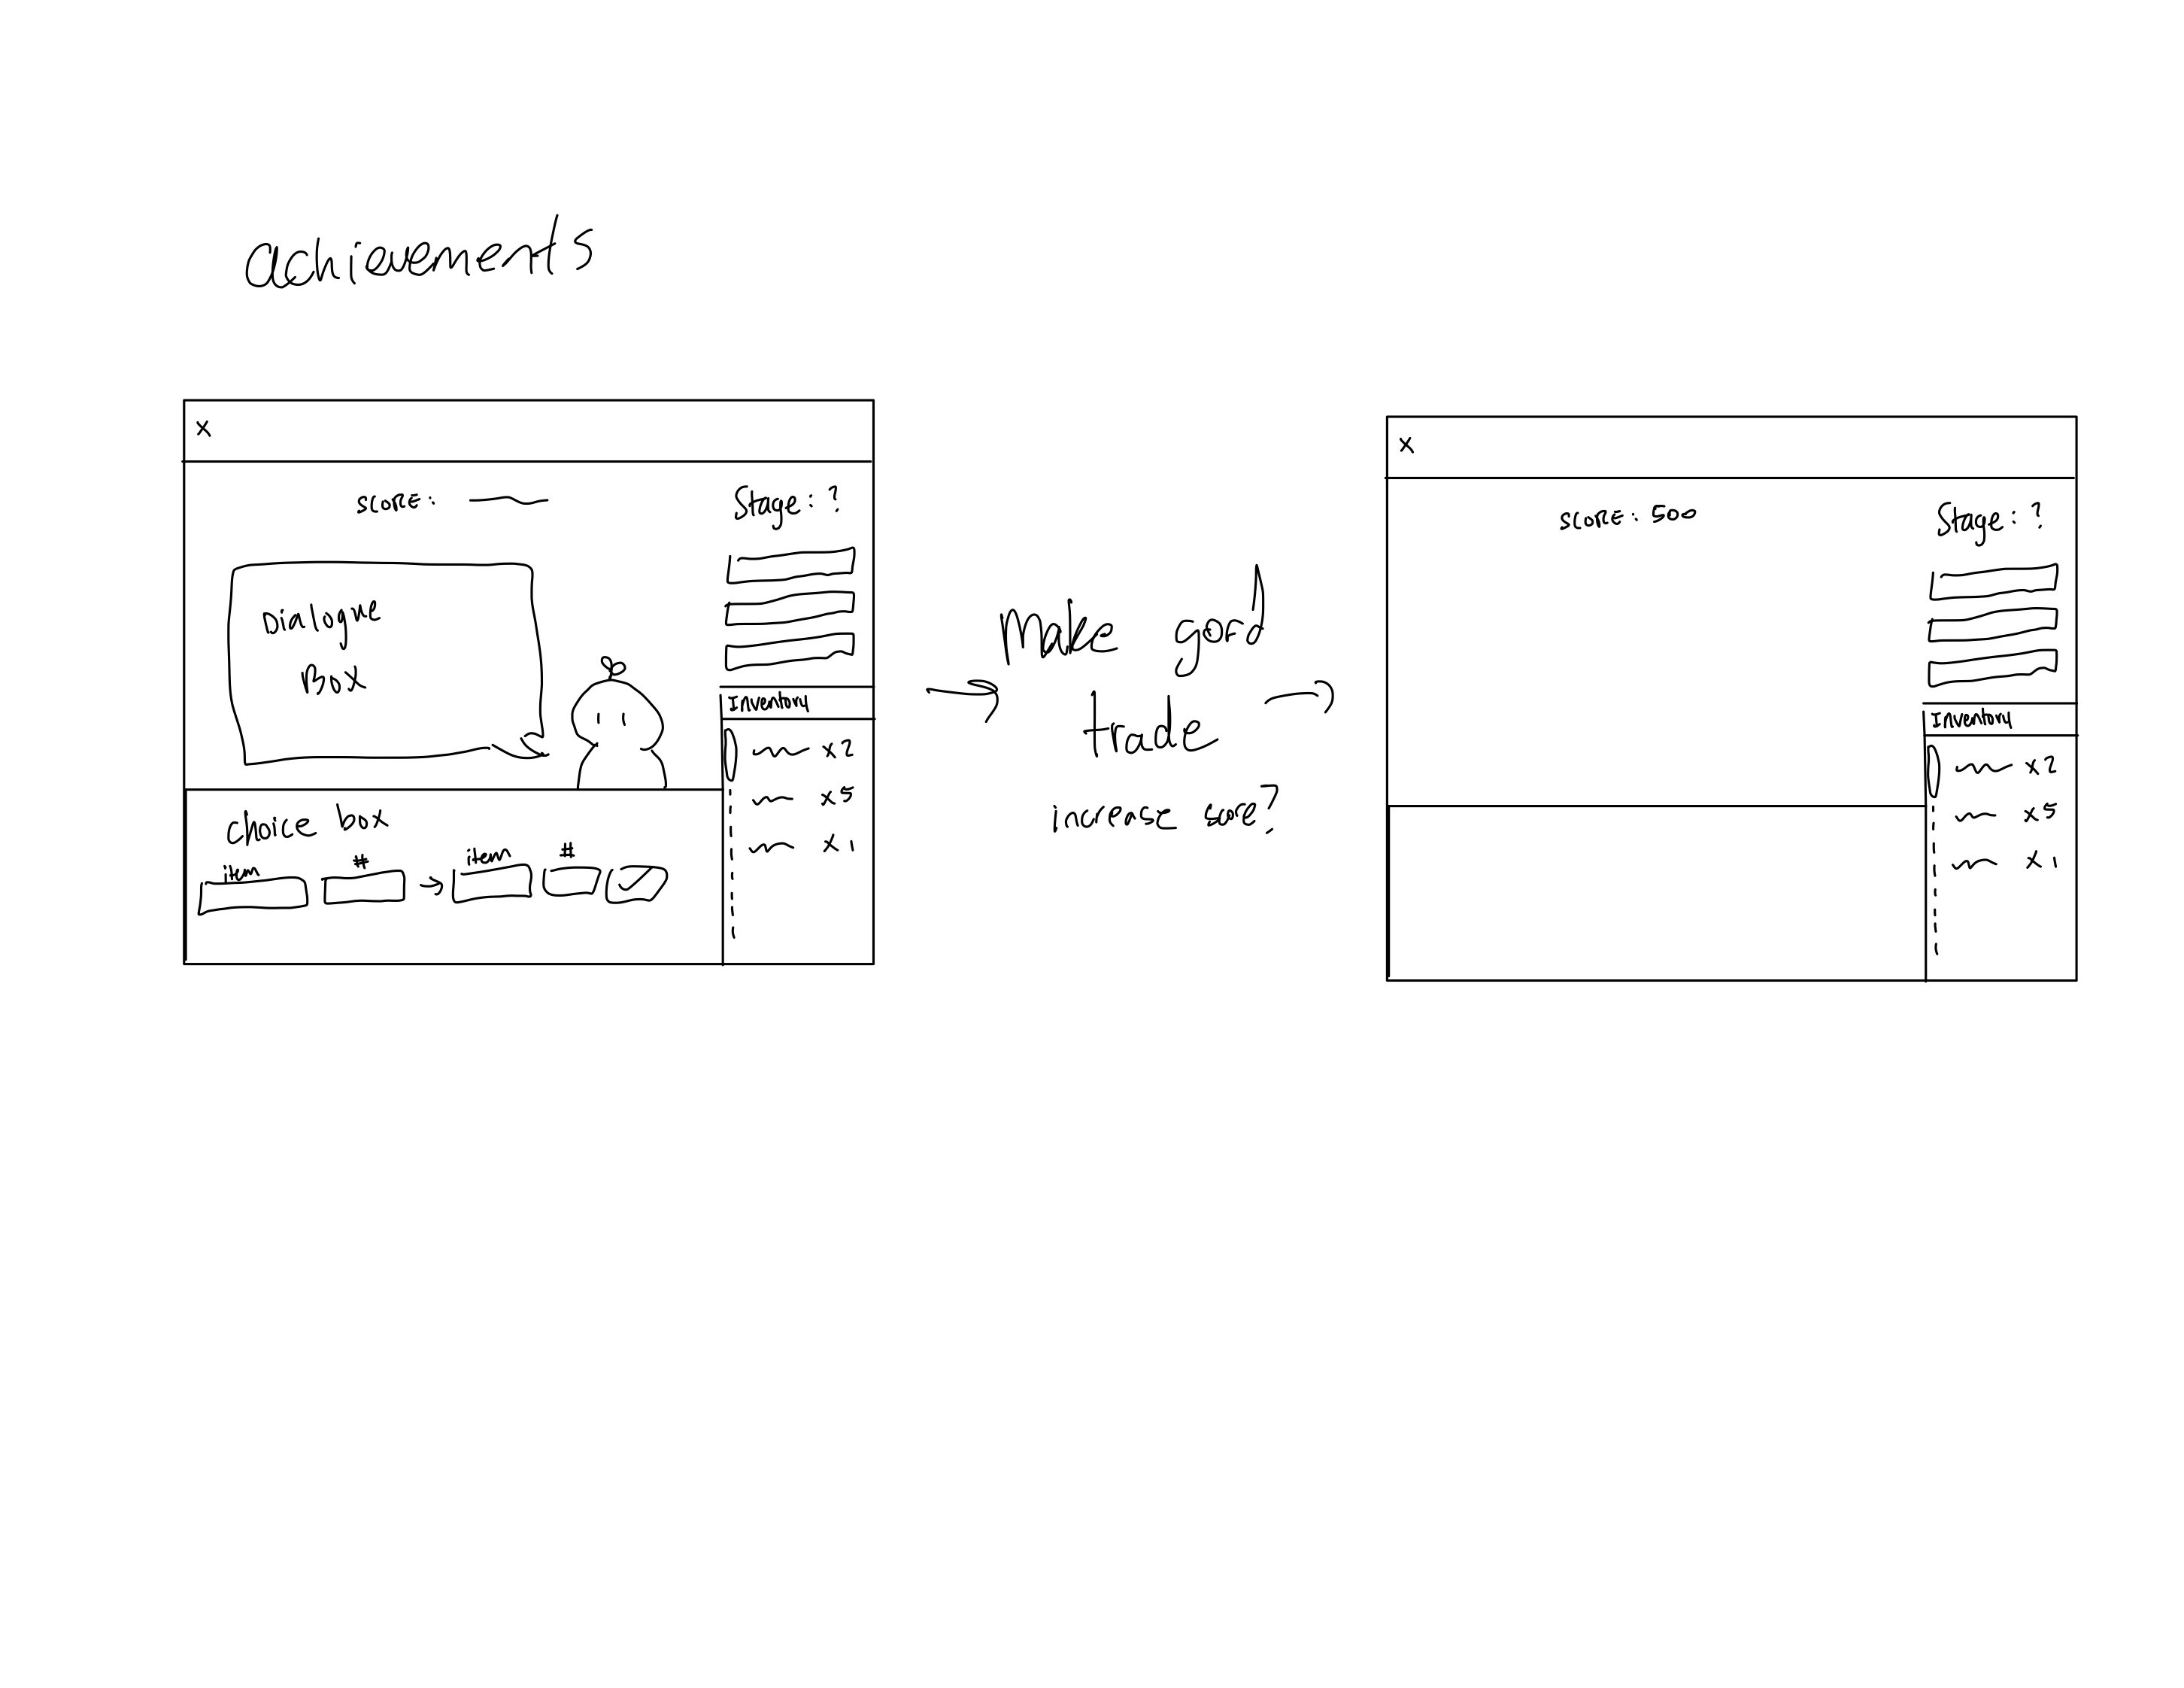 achievements
x
score:
Stage: ?
Dialogue
Box
Inventory
x2
x5
x1
choice box
item # → item #
→ Make good
trade →
increase score?
x
score: 500
Stage: ?
Inventory
x2
x5
x1